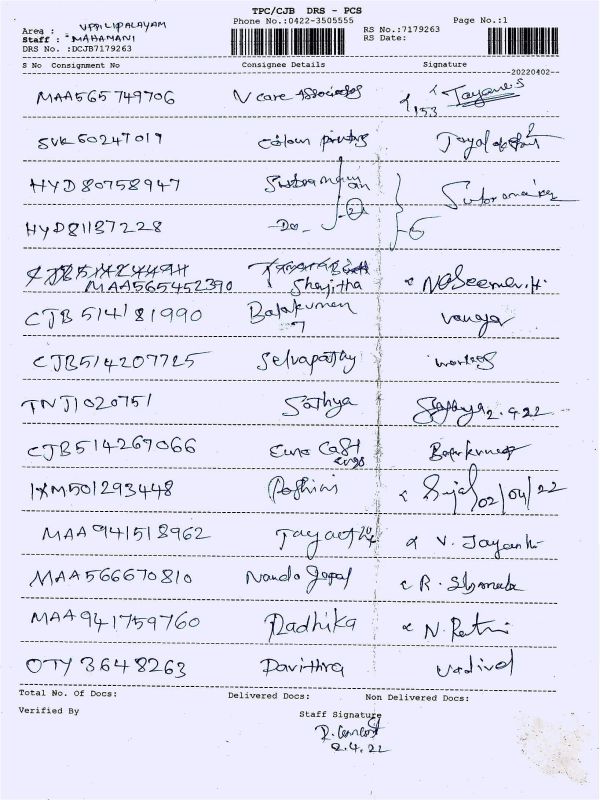 TPC/CJB DRS - PCS
Phone No.:0422-3505555 Page No.:1
Area : UPPILIPALAYAM
Staff : MAHAMANI
DRS No. :DCJB7179263
RS No.:7179263
RS Date:
S No Consignment No Consignee Details Signature
--20220402--
MAA565749706 V care Associates 153
SVK60247017 Colour printing
HYD80758947
HYD81187228 -Do-
MAA565452390 Shajitha
CJB514181990 Balakumar
CJB514207725 Selvapathy
TNJ1020751 Sathya 2.4.22
CJB514267066 Euro Cast
IXM501293448 02/04/22
MAA941518962 V. Jayanthi
MAA566670810 Nanda Gopal R.
MAA941759760 Radhika N.
OTY3648263 Pavithra Vadivel
Total No. Of Docs: Delivered Docs: Non Delivered Docs:
Verified By Staff Signature
2.4.22